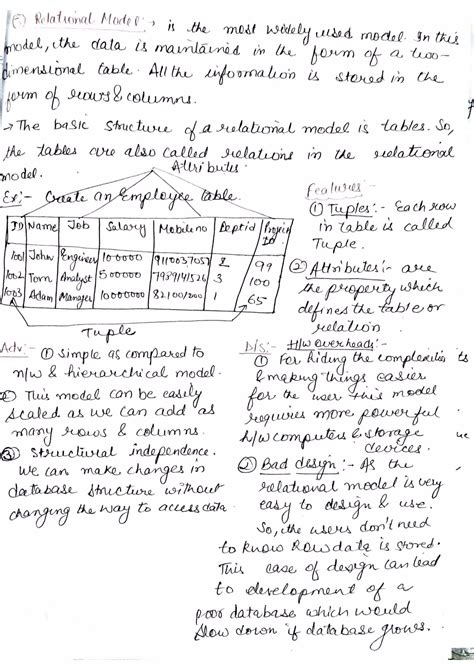 ⑤ Relational Model :→ is the most widely used model. In this
model, the data is maintained in the form of a two-
dimensional table. All the information is stored in the
form of rows & columns.
→ The basic structure of a relational model is tables. So,
the tables are also called relations in the relational
model.
Attributes
Ex:- Create an Employee table.
ID Name Job Salary Mobileno Deptid Project Id
1001 John Engineer 100000 9110037057 2 99
1002 Tom Analyst 500000 7989141526 3 100
1003 Adam Manager 1000000 82100/200 1 65
Tuple
Features:-
① Tuples:- Each row
in table is called
Tuple.
② Attributes:- are
the property which
defines the table or
relation
Adv:- ① Simple as compared to
n/w & hierarchical model.
② This model can be easily
scaled as we can add as
many rows & columns.
③ Structural independence.
We can make changes in
database structure without
changing the way to access data.
D/s:- H/w overheads:-
① For hiding the complexities
& making things easier
for the user this model
requires more powerful
h/w computers & storage
devices.
② Bad design:- As the
relational model is very
easy to design & use.
So, the users don't need
to know how data is stored.
This case of design can lead
to development of a
poor database which would
slow down if database grows.